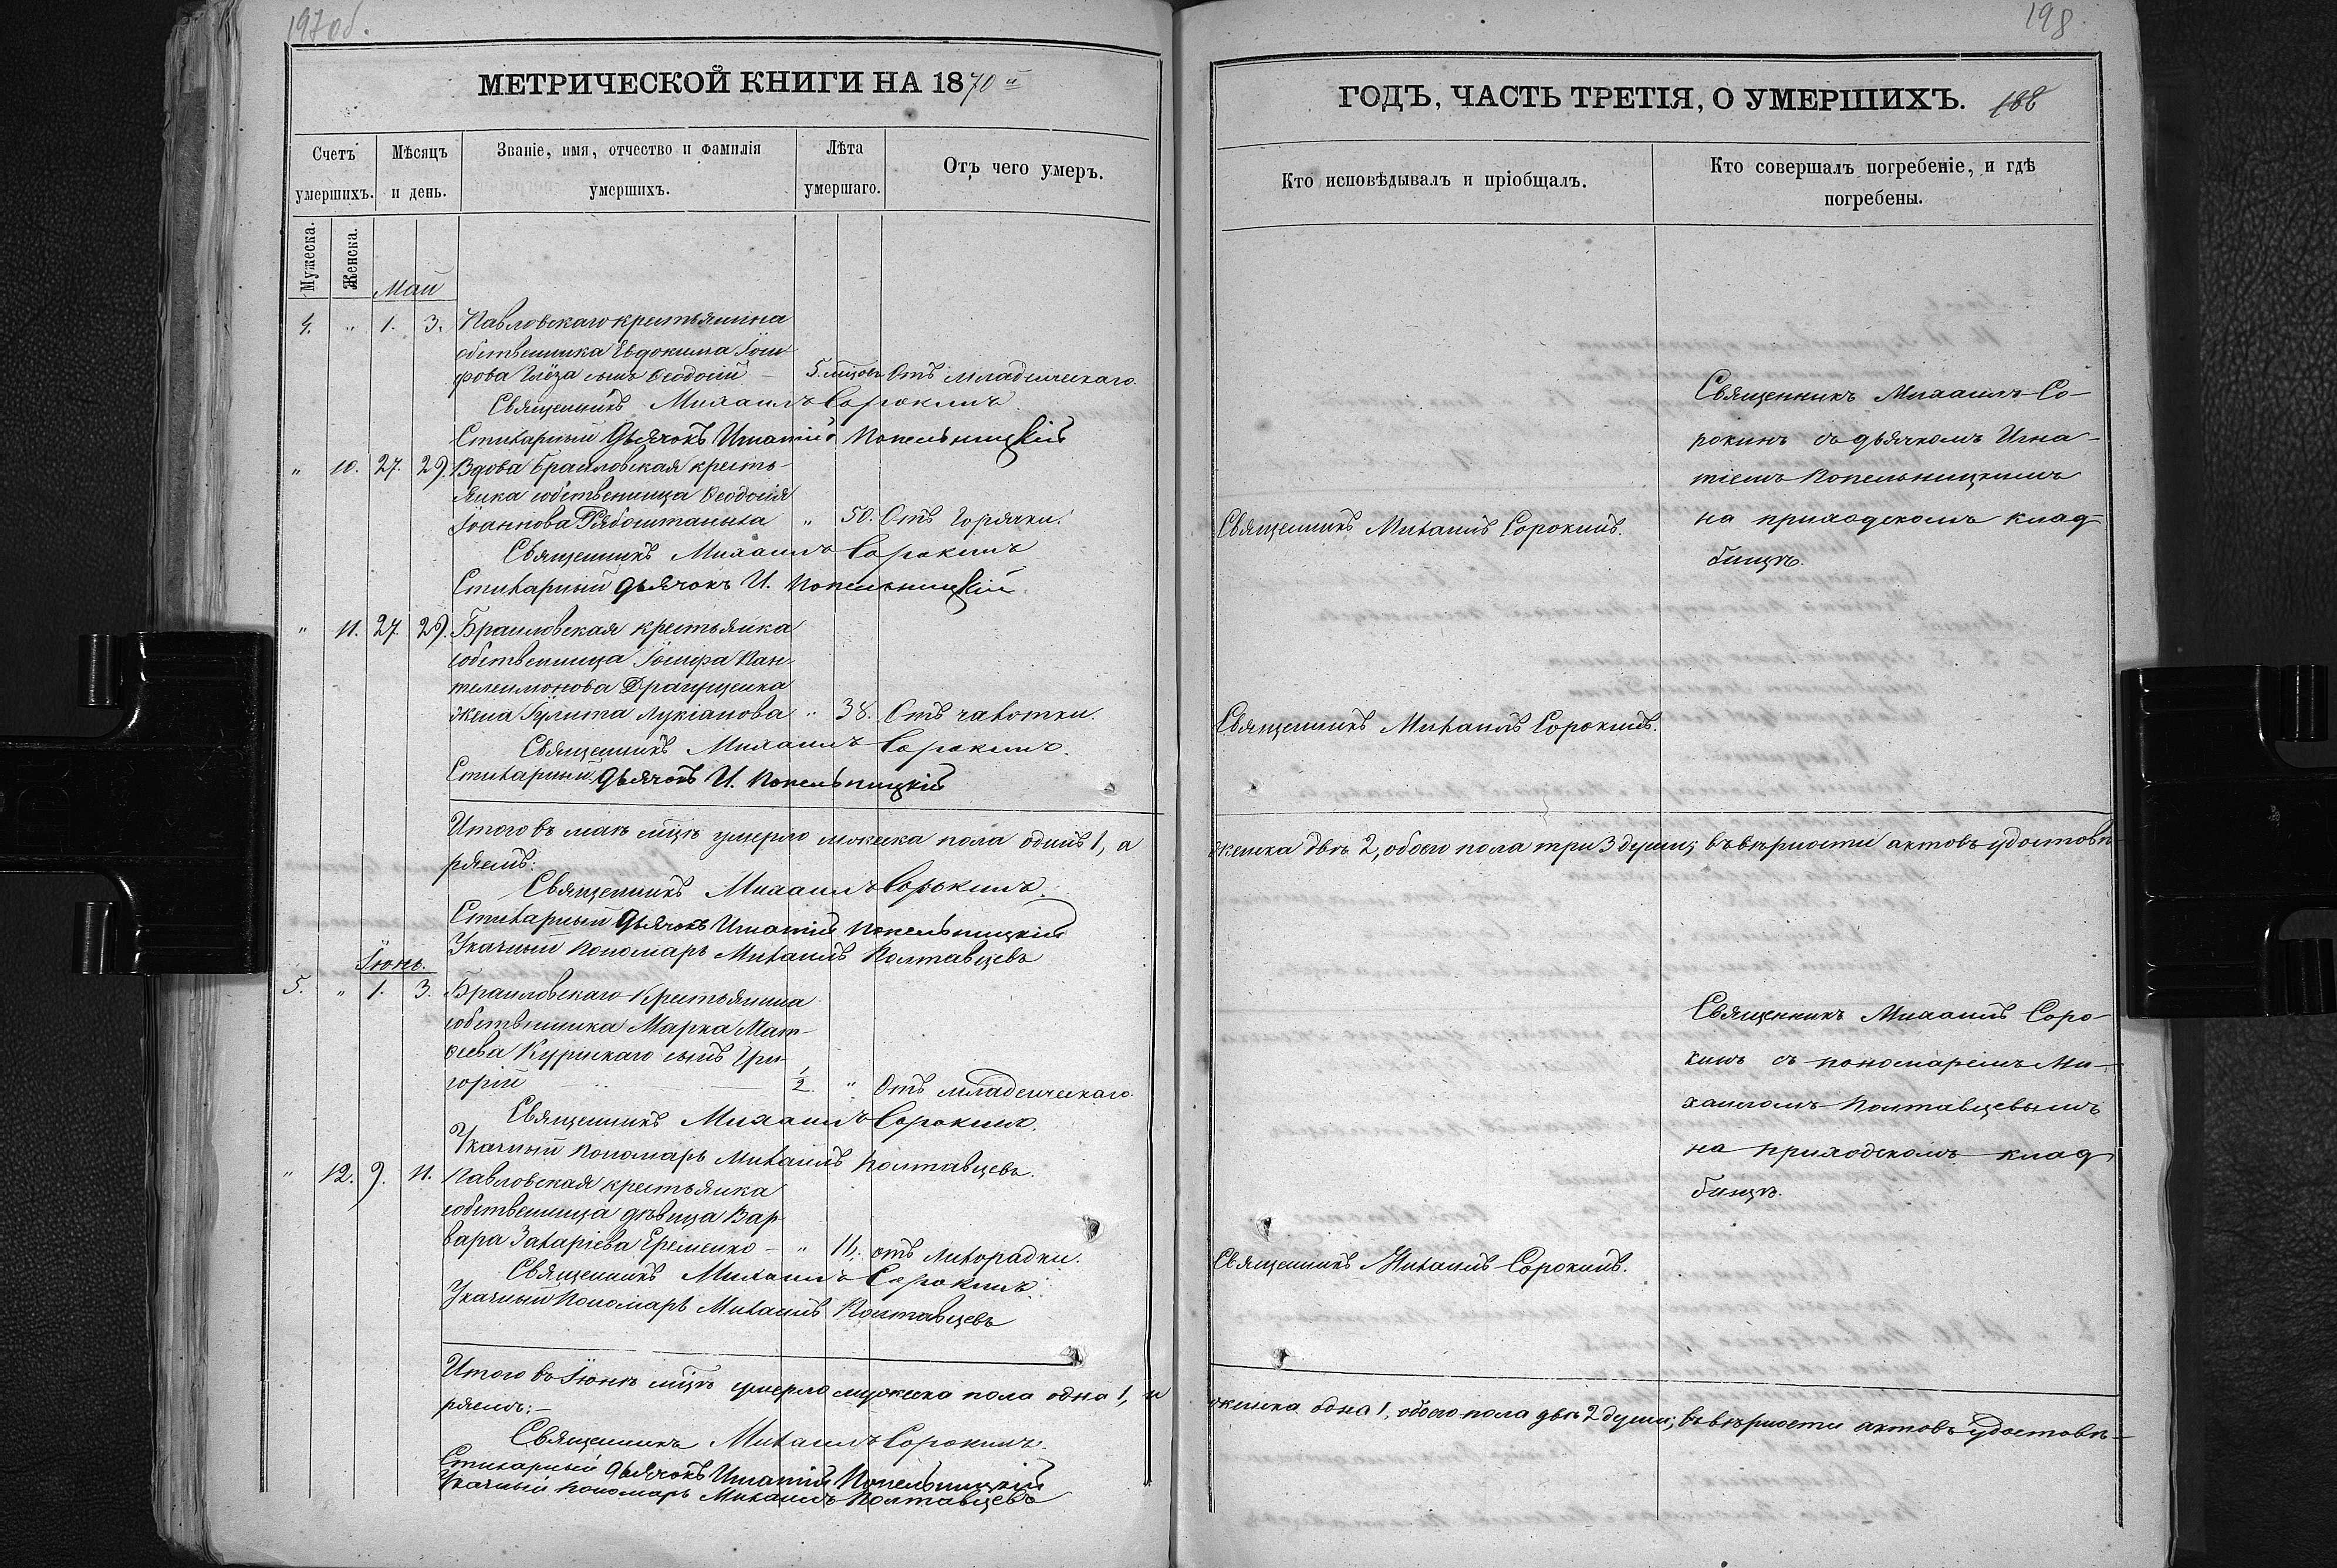 197 об.
МЕТРИЧЕСКОЙ КНИГИ НА 1870й
Счетъ умершихъ.
Мѣсяцъ и день.
Званіе, имя, отчество и фамилія умершихъ.
Лѣта умершаго.
Отъ чего умеръ.
Мужеска.
Женска.
Май
4. " 1. 3. Павловскаго крестьянина
собственника Евдокима Іоси-
фова сынъ Ѳеодосій — 5. мцовъ Отъ младенческаго.
Священникъ Михаилъ Сорокинъ.
Стихарный Дьячокъ Игнатій Попельницкій
" 10. 27. 29. Вдова Браиловская кресть-
янка собственница Ѳеодосія
Іоаннова Рябоштаныха " 50. Отъ Горячки.
Священникъ Михаилъ Сорокинъ
Стихарный Дьячокъ И. Попельницкій.
" 11. 27. 29. Браиловская крестьянка
собственница Іосифа Пан-
телеимонова Драгущенка
жена Іулита Лукіанова " 38. Отъ чахотки.
Священникъ Михаилъ Сорокинъ.
Стихарный Дьячокъ И. Попельницкій
Итого въ маѣ мцѣ умерло мужеска пола одинъ 1, а
ряемъ:
Священникъ Михаилъ Сорокинъ.
Стихарный Дьячокъ Игнатій Попельницкій
Указный Пономарь Михаилъ Полтавцевъ
Іюнь.
5. " 1. 3. Браиловскаго Крестьянина
собственника Марка Мат-
ѳеева Курискаго сынъ Гри-
горій — 1/2 " Отъ младенческаго.
Священникъ Михаилъ Сорокинъ.
Указный Пономарь Михаилъ Полтавцевъ.
" 12. 9. 11. Павловская крестьянка
собственница дѣвица Вар-
вара Захаріева Еременко — " 14. отъ лихорадки.
Священникъ Михаилъ Сорокинъ.
Указный Пономарь Михаилъ Полтавцевъ
Итого въ Іюнѣ мцѣ умерло мужеска пола одна 1, и
ряемъ:—
Священникъ Михаилъ Сорокинъ.
Стихарный Дьячокъ Игнатій Попельницкій
Указный Пономарь Михаилъ Полтавцевъ
198
ГОДЪ, ЧАСТЬ ТРЕТІЯ, О УМЕРШИХЪ. 188
Кто исповѣдывалъ и пріобщалъ.
Кто совершалъ погребеніе, и гдѣ
погребены.
Священникъ Михаилъ Со-
рокинъ съ дьячкомъ Игна-
тіемъ Попельницкимъ
на приходскомъ клад-
бищѣ.
Священникъ Михаилъ Сорокинъ.
Священникъ Михаилъ Сорокинъ.
женска двѣ 2, обоего пола три 3 души; въ вѣрности актовъ удостовѣ-
Священникъ Михаилъ Соро-
кинъ съ пономаремъ Ми-
хаиломъ Полтавцевымъ
на приходскомъ клад-
бищѣ.
Священникъ Михаилъ Сорокинъ.
женска одна 1, обоего пола двѣ 2 души; въ вѣрности актовъ удостовѣ-